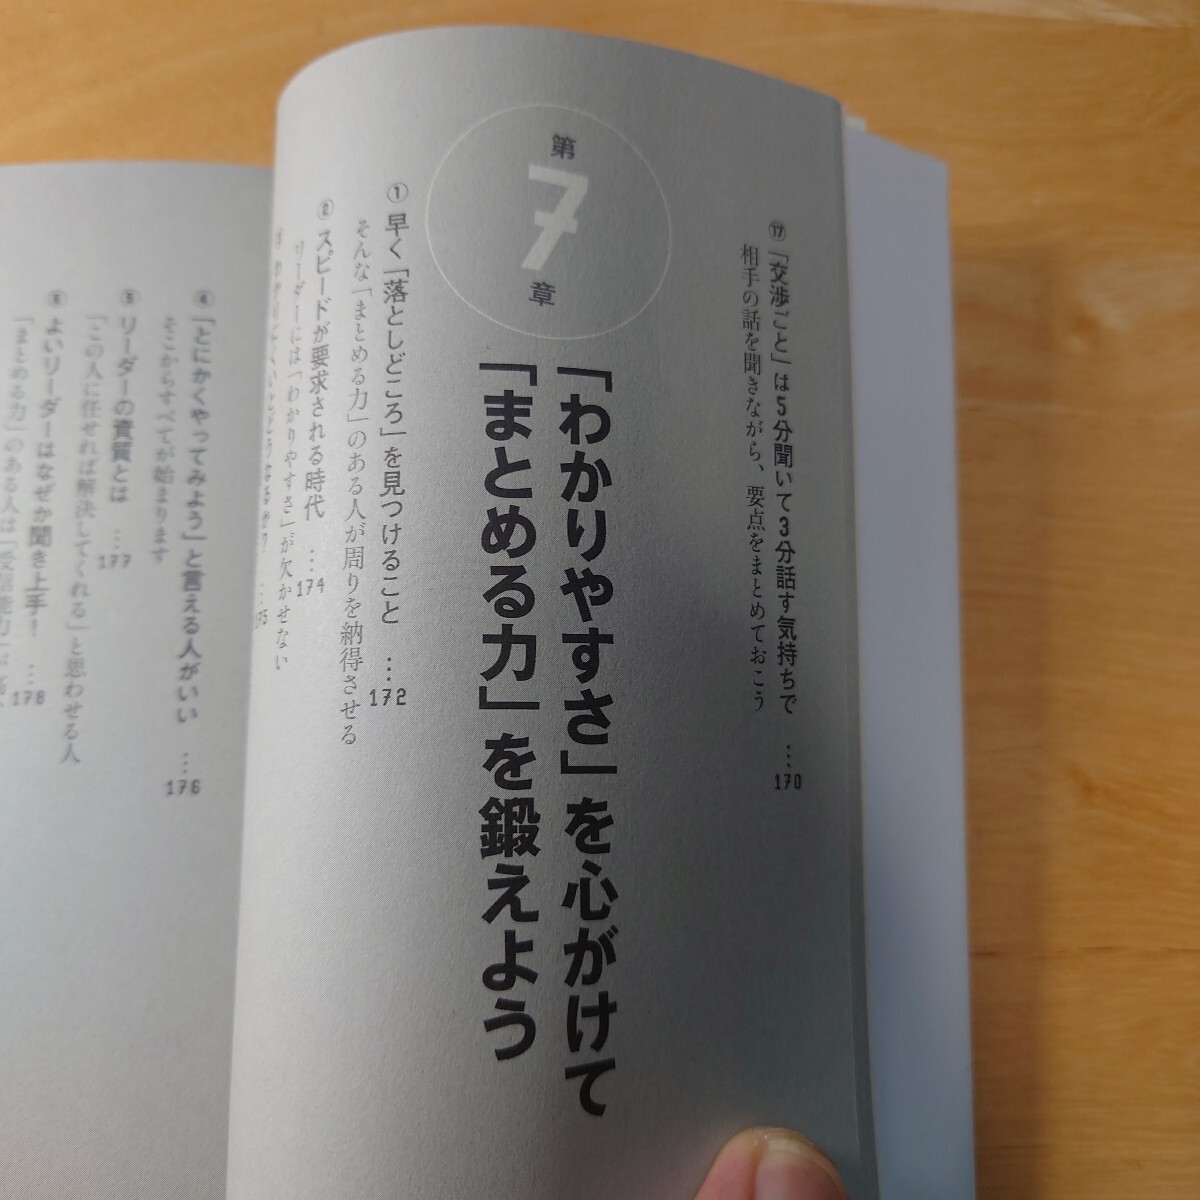 ⑰「交渉ごと」は5分聞いて3分話す気持ちで …170
相手の話を聞きながら、要点をまとめておこう
第7章
「わかりやすさ」を心がけて
「まとめる力」を鍛えよう
① 早く「落としどころ」を見つけること …172
そんな「まとめる力」のある人が周りを納得させる
② スピードが要求される時代 …174
リーダーには「わかりやすさ」が欠かせない
…175
④「とにかくやってみよう」と言える人がいい …176
そこからすべてが始まります
⑤ リーダーの資質とは …177
「この人に任せれば解決してくれる」と思わせる人
⑥ よいリーダーはなぜか聞き上手！ …178
「まとめる力」のある人は「受信能力」が